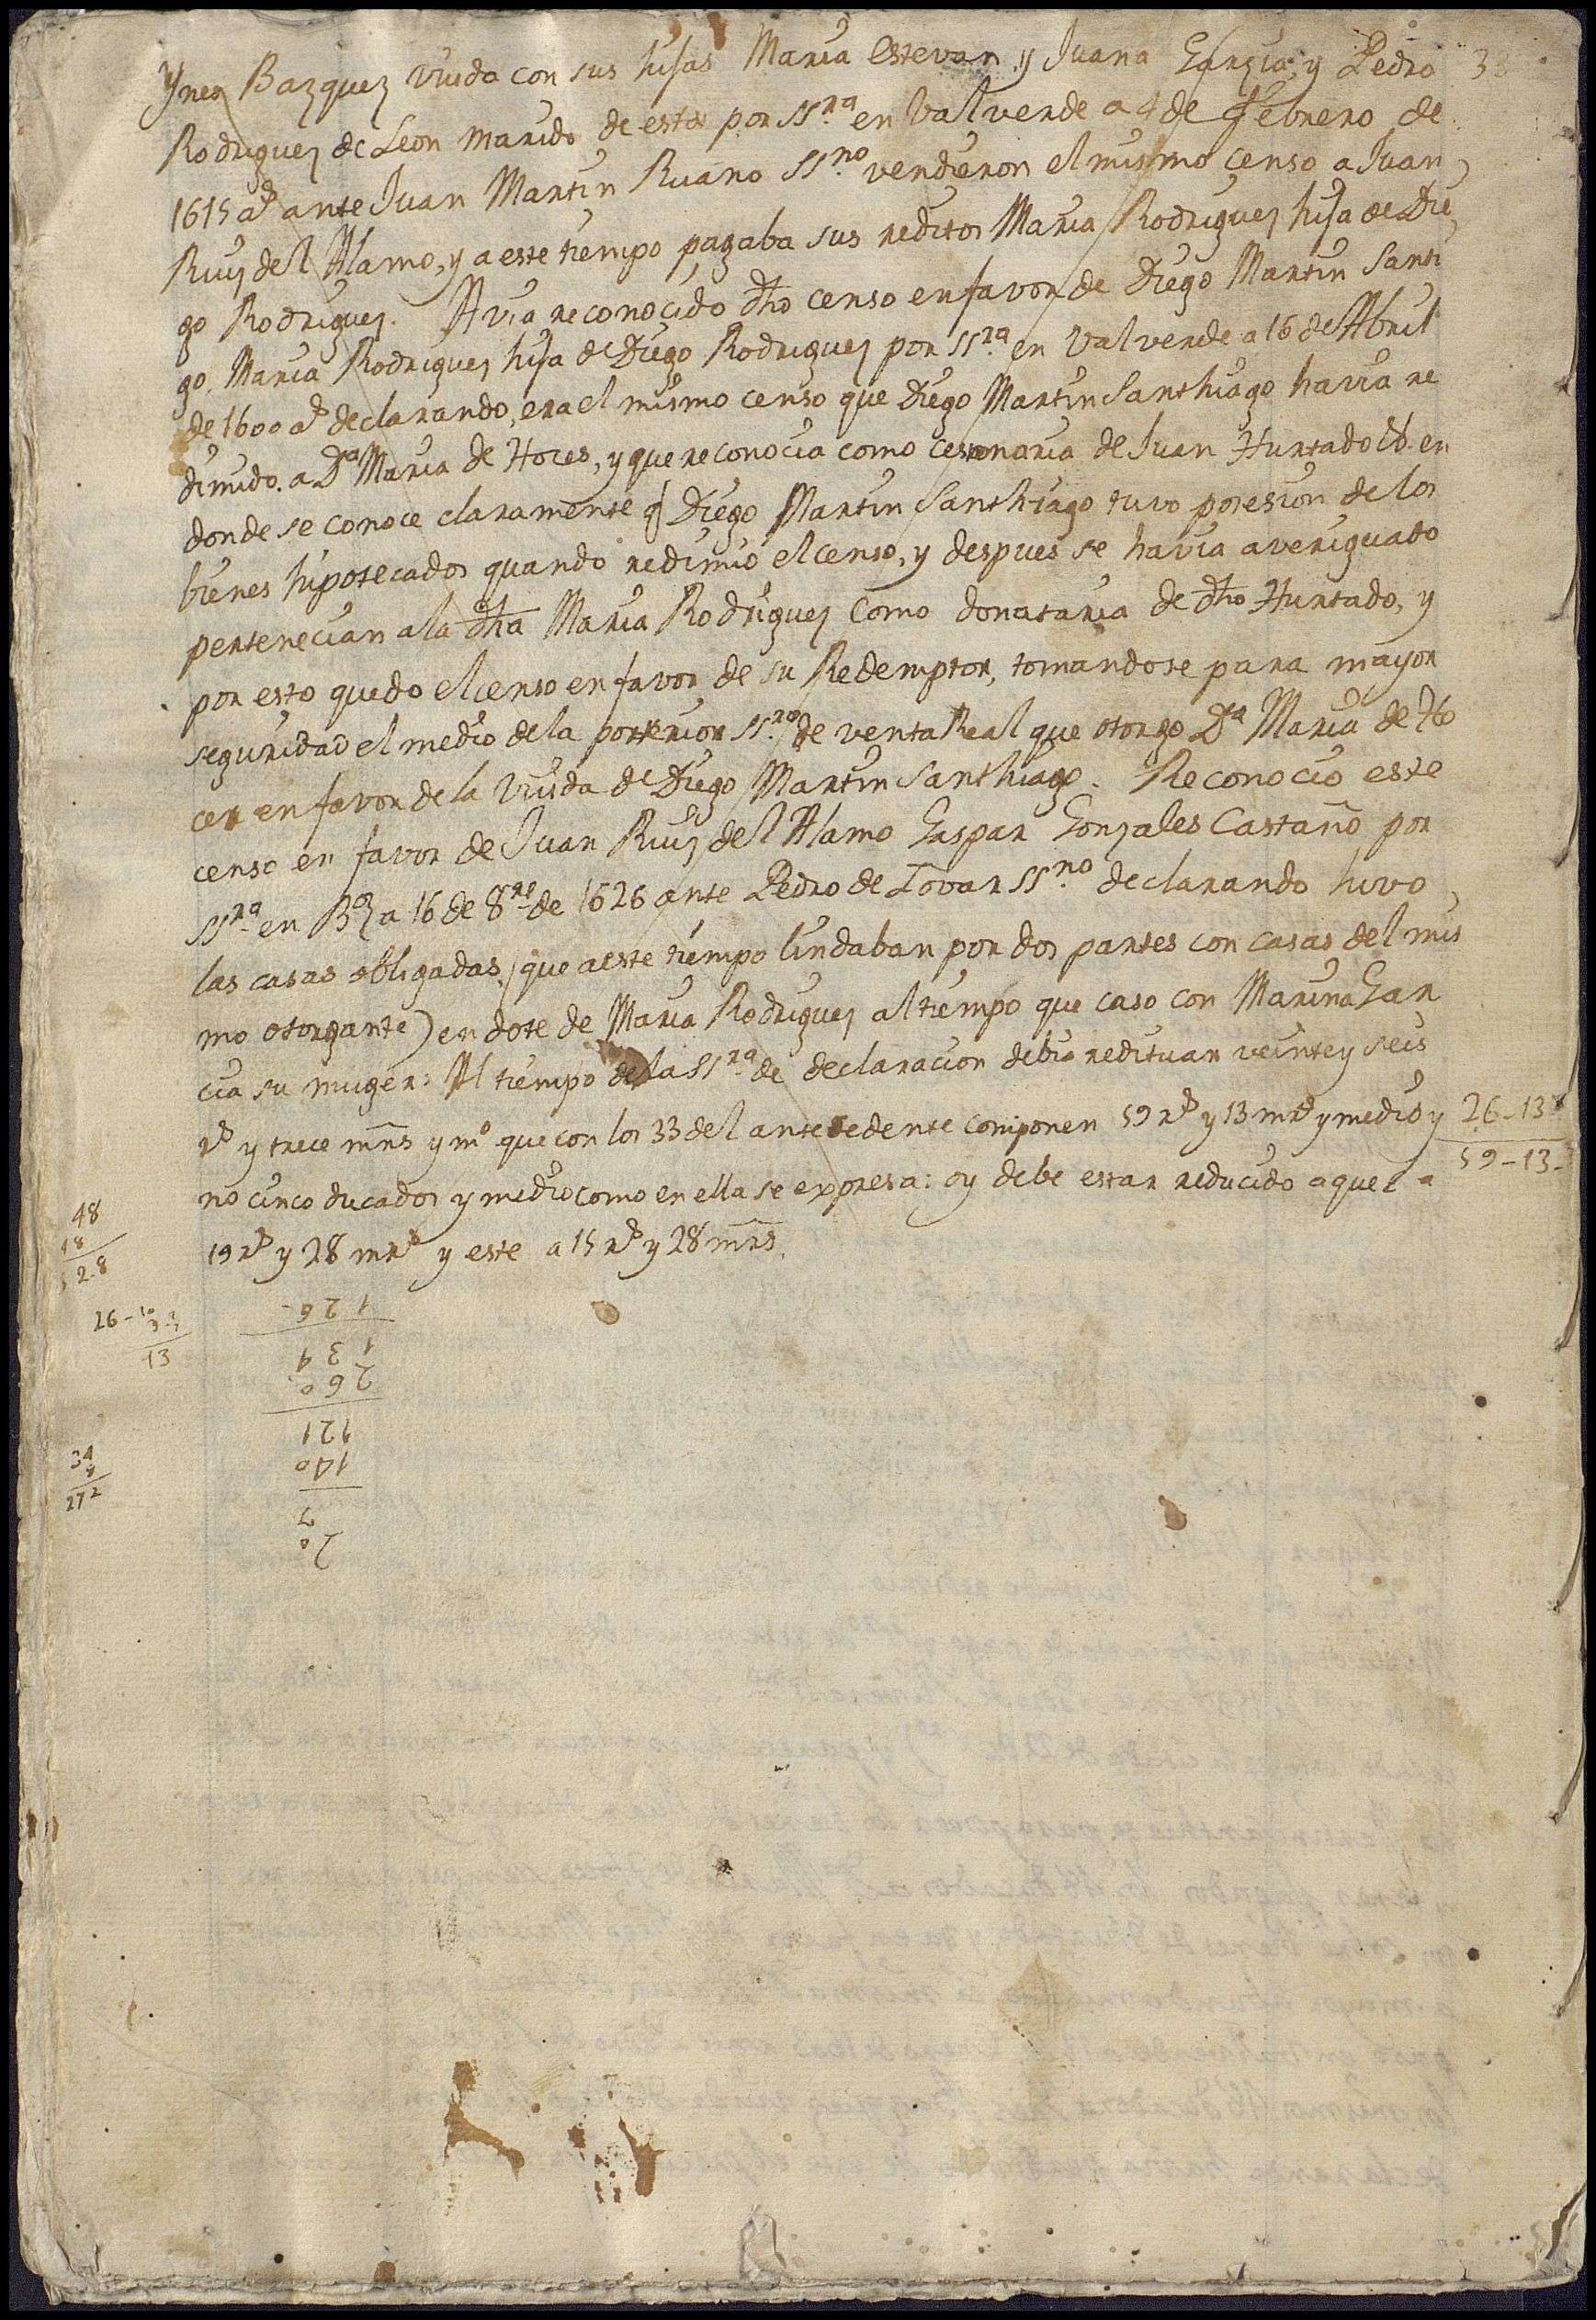 Ynes Bazquez viuda con sus hijas Maria Estevan y Juana Garzia, y Pedro 33
Rodriguez de Leon marido de esta por ssra en Valverde a 4 de Febrero de
1615 as ante Juan Martin Ruano ssno vendieron el mismo censo a Juan
Ruiz del Alamo, y a este tiempo pagaba sus reditos Maria Rodriguez hija de Die
go Rodriguez. Avia reconocido dho censo en favor de Diego Martin Santi
go. Maria Rodriguez hija de Diego Rodriguez por ssra en Valverde a 16 de Abril
de 1600 as declarando, era el mismo censo que Diego Martin Santhiago havia re
dimido. a Da Maria de Hoces, y que reconocia como cesionaria de Juan Hurtado en
donde se conoce claramente q Diego Martin Santhiago tuvo posesion de los
bienes hipotecados quando redimio el censo, y despues se havia averiguado
pertenecian a la dha Maria Rodriguez como donataria de dho Hurtado, y
por esto quedo el censo en favor de su Redemptor, tomandose para mayor
seguridad el medio de la posterior ssra de venta Real que otorgo Da Maria de Ho
ces en favor de la viuda de Diego Martin Santhiago. Reconocio este
censo en favor de Juan Ruiz del Alamo Gaspar Gonzales Castaño por
ssra en Bz a 16 de 8re de 1626 ante Pedro de Tovar ssno declarando huvo
las casas obligadas, (que a este tiempo lindaban por dos partes con casas del mis
mo otorgante) en dote de Maria Rodriguez al tiempo que caso con Marina Gar
cia su muger: Al tiempo de la ssra de declaracion debio redituar veinte y seis
rs y trece mrs y mo que con los 33 del antecedente componen 59 rs y 13 mrs y medio y 26-13
no cinco ducados y medio como en ella se expresa: oy debe estar reducido aquel a 59-13-
19 rs y 28 mrs y este a 15 rs y 28 mrs.
48
18
2-8
26-
13
126-
134
260
121
140
34
8
272
7
70